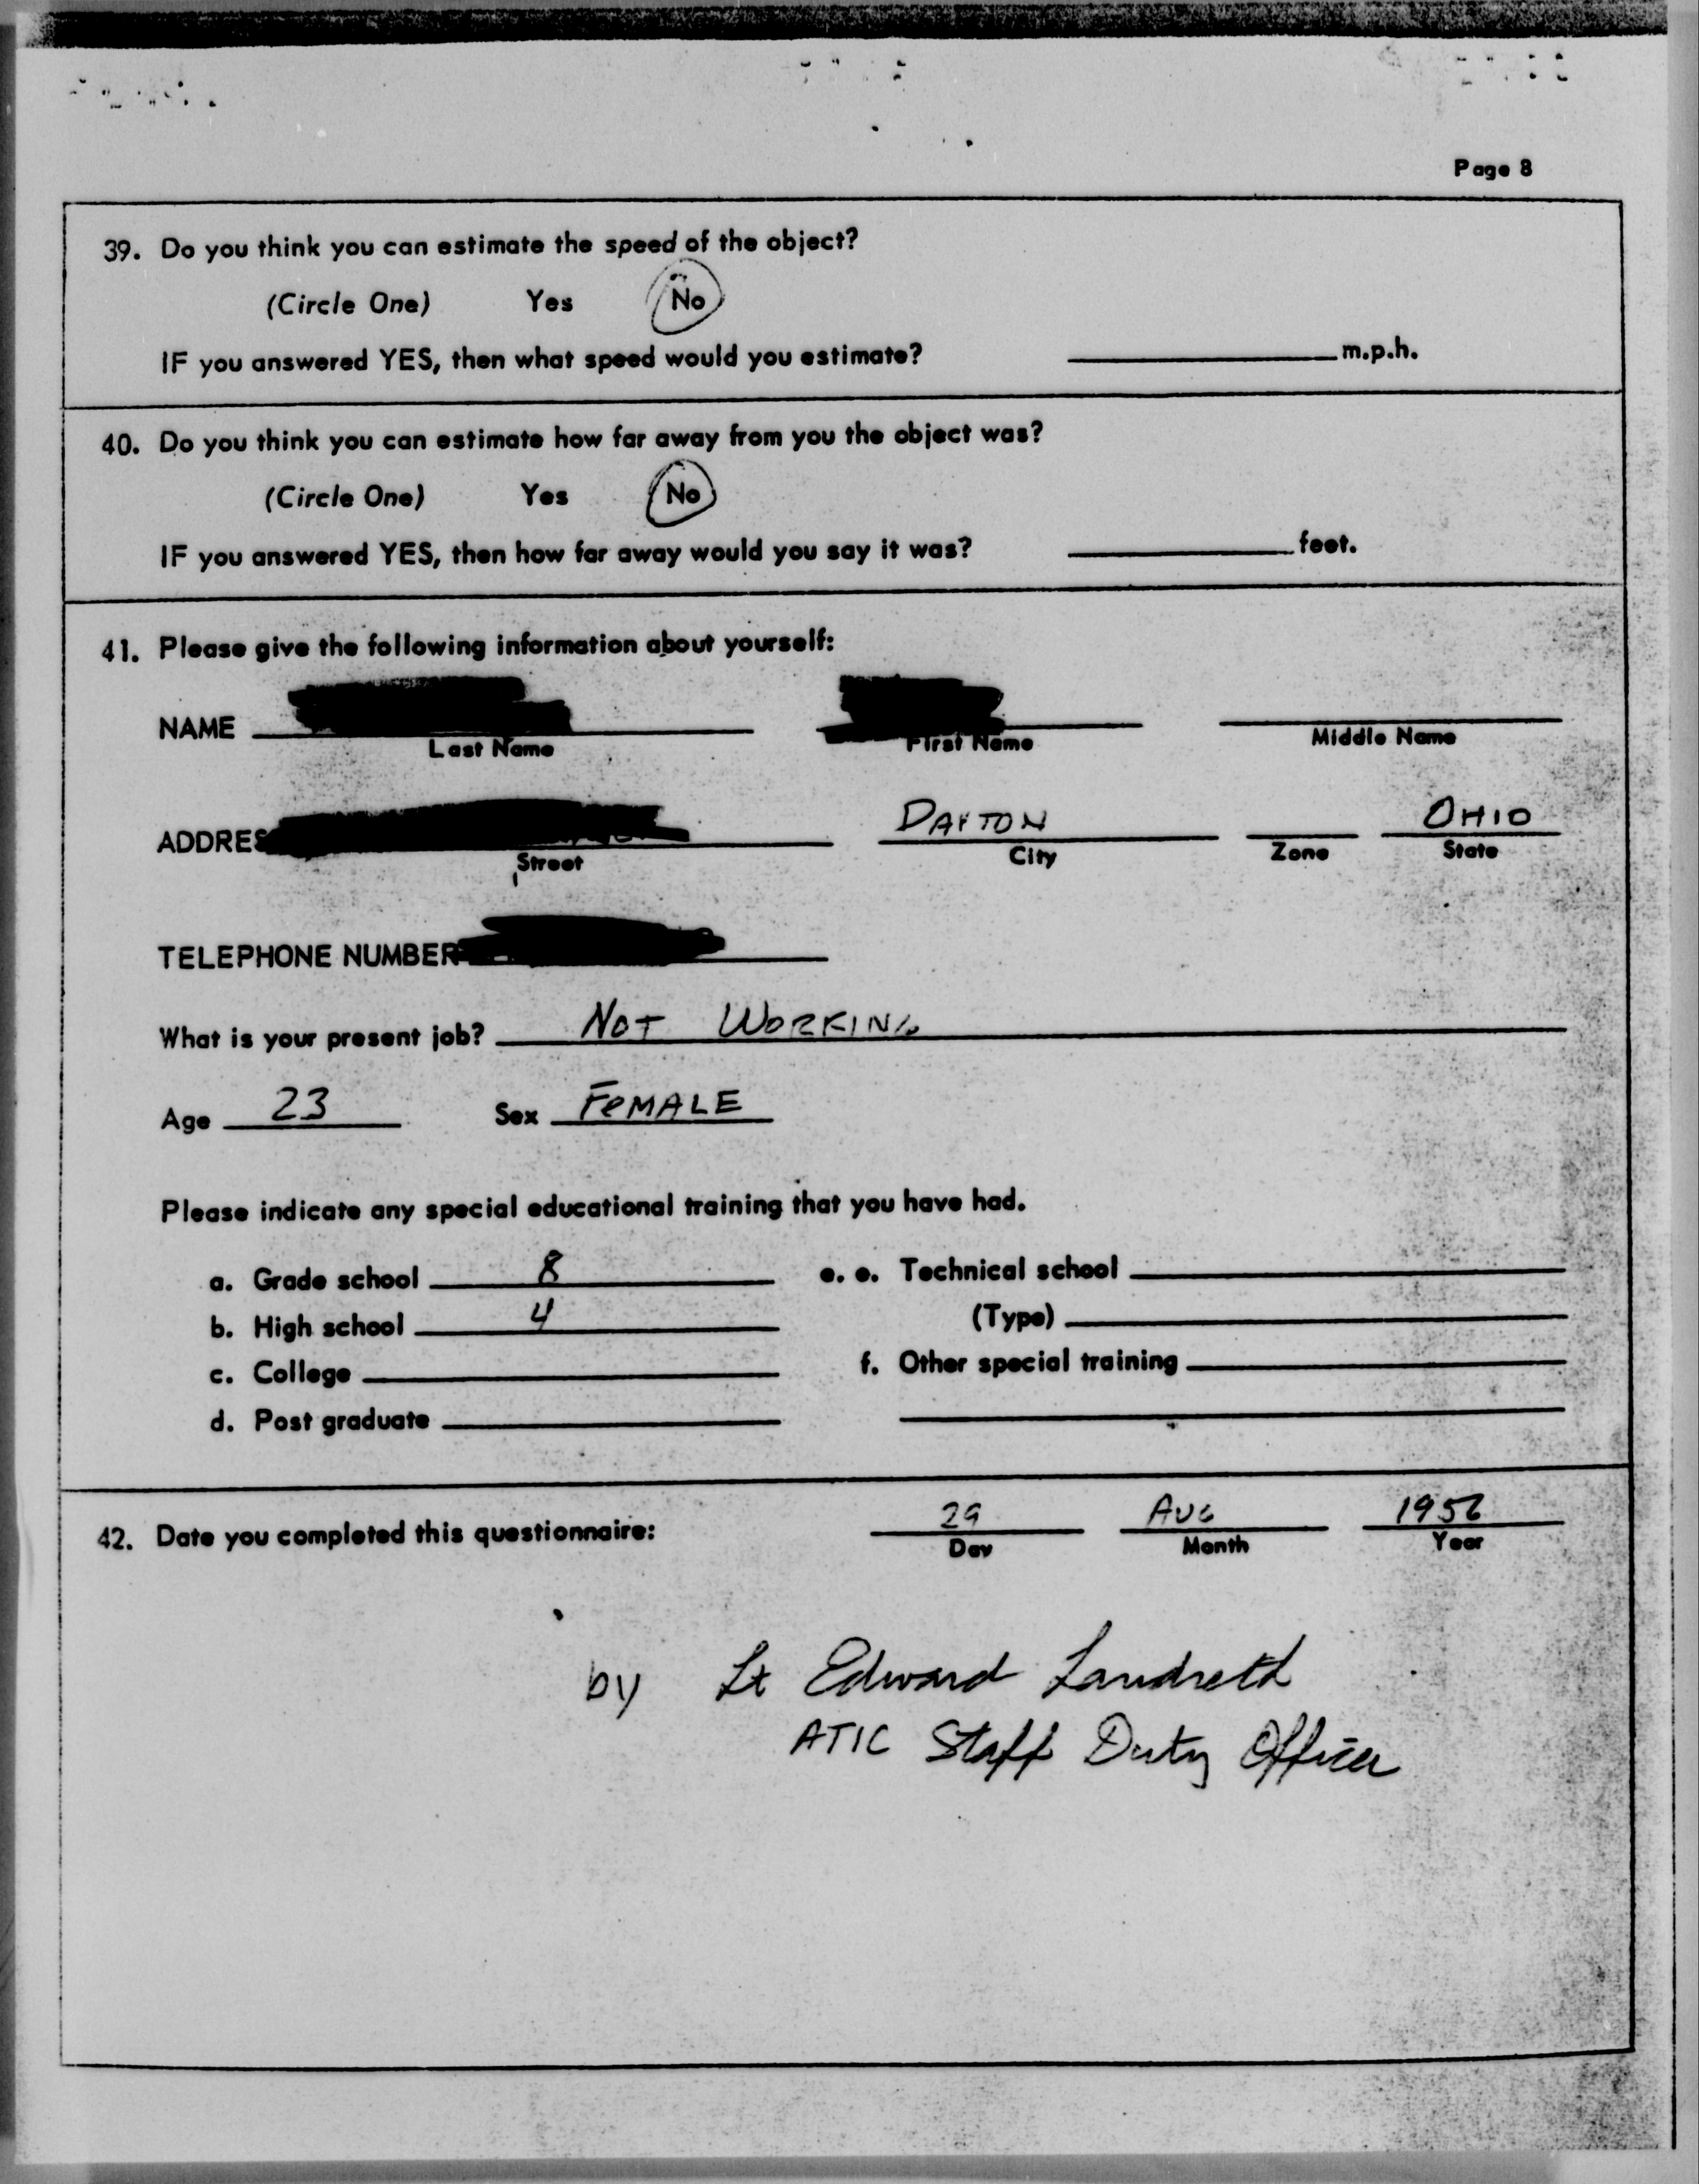 Page 8
39. Do you think you can estimate the speed of the object?
(Circle One) Yes No
IF you answered YES, then what speed would you estimate? m.p.h.
40. Do you think you can estimate how far away from you the object was?
(Circle One) Yes No
IF you answered YES, then how far away would you say it was? feet.
41. Please give the following information about yourself:
NAME
Last Name First Name Middle Name
DAYTON OHIO
ADDRES
Street City Zone State
TELEPHONE NUMBER
What is your present job? NOT WORKING
Age 23 Sex FEMALE
Please indicate any special educational training that you have had.
a. Grade school 8 e. e. Technical school
b. High school 4 (Type)
c. College f. Other special training
d. Post graduate
42. Date you completed this questionnaire: 29 AUG 1956
Day Month Year
by Lt Edward Landreth
ATIC Staff Duty Officer